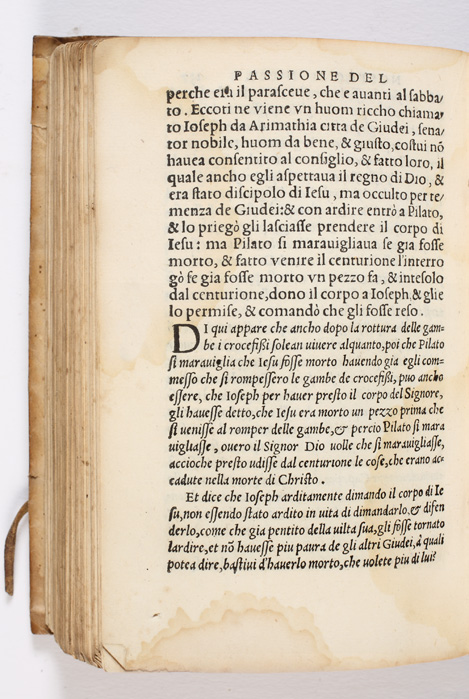 PASSIONE DEL
perche era il parasceue, che e auanti al sabba/
to. Eccoti ne viene vn huom riccho chiama/
to Ioseph da Arimathia citta de Giudei, sena/
tor nobile, huom da bene, & giusto, costui nõ
hauea consentito al consiglio, & fatto loro, il
quale ancho egli aspettaua il regno di Dio, &
era stato discipolo di Iesu, ma occulto per te/
menza de Giudei: & con ardire entrò a Pilato,
& lo priegò gli lasciasse prendere il corpo di
Iesu: ma Pilato si marauigliaua se gia fosse
morto, & fatto venire il centurione l'interro
gò se gia fosse morto vn pezzo fa, & intesolo
dal centurione, dono il corpo a Ioseph, & glie
lo permise, & comandò che gli fosse reso.
DI qui appare che ancho dopo la rottura delle gam=
be i crocefißi solean uiuere alquanto, poi che Pilato
si marauiglia che Iesu fosse morto hauendo gia egli com=
messo che si rompessero le gambe de crocefißi, puo ancho
essere, che Ioseph per hauer presto il corpo del Signore,
gli hauesse detto, che Iesu era morto un pezzo prima che
si uenisse al romper delle gambe, & percio Pilato si mara
uigliasse, ouero il Signor Dio uolle che si marauigliasse,
accioche presto udisse dal centurione le cose, che erano ac=
cadute nella morte di Christo.
Et dice che Ioseph arditamente dimando il corpo di Ie
su, non essendo stato ardito in uita di dimandarlo, & difen
derlo, come che gia pentito della uilta sua, gli fosse tornato
lardire, et nõ hauesse piu paura de gli altri Giudei, à quali
potea dire, bastiui d'hauerlo morto, che uolete piu di lui?